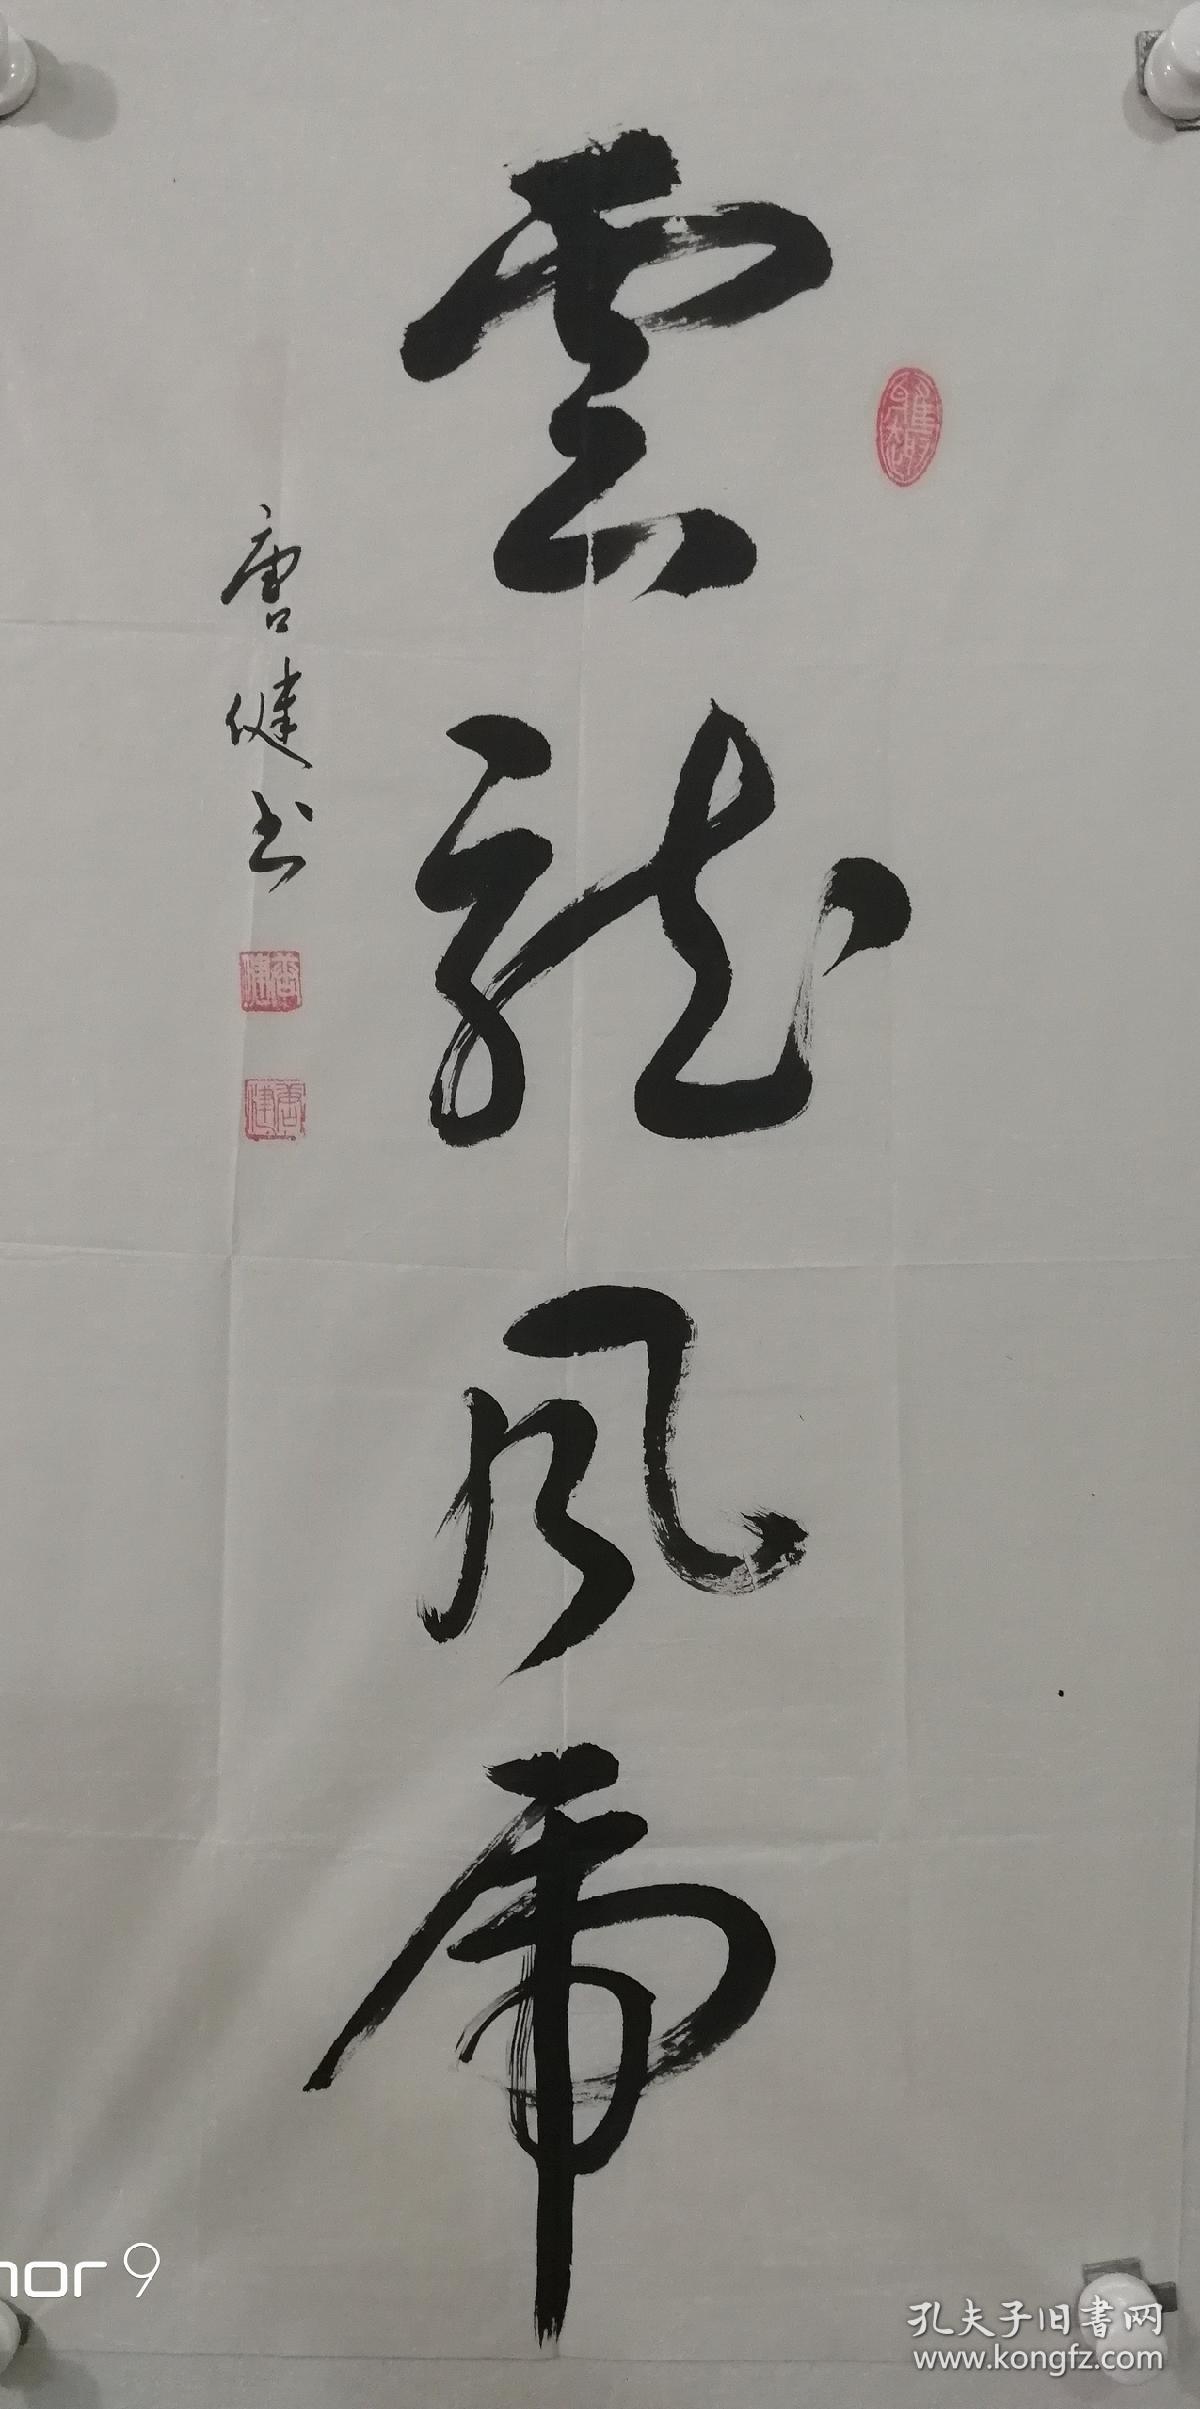 雲龍風虎
唐健书
唐健
唐健
nor 9
孔夫子旧書网
www.kongfz.com